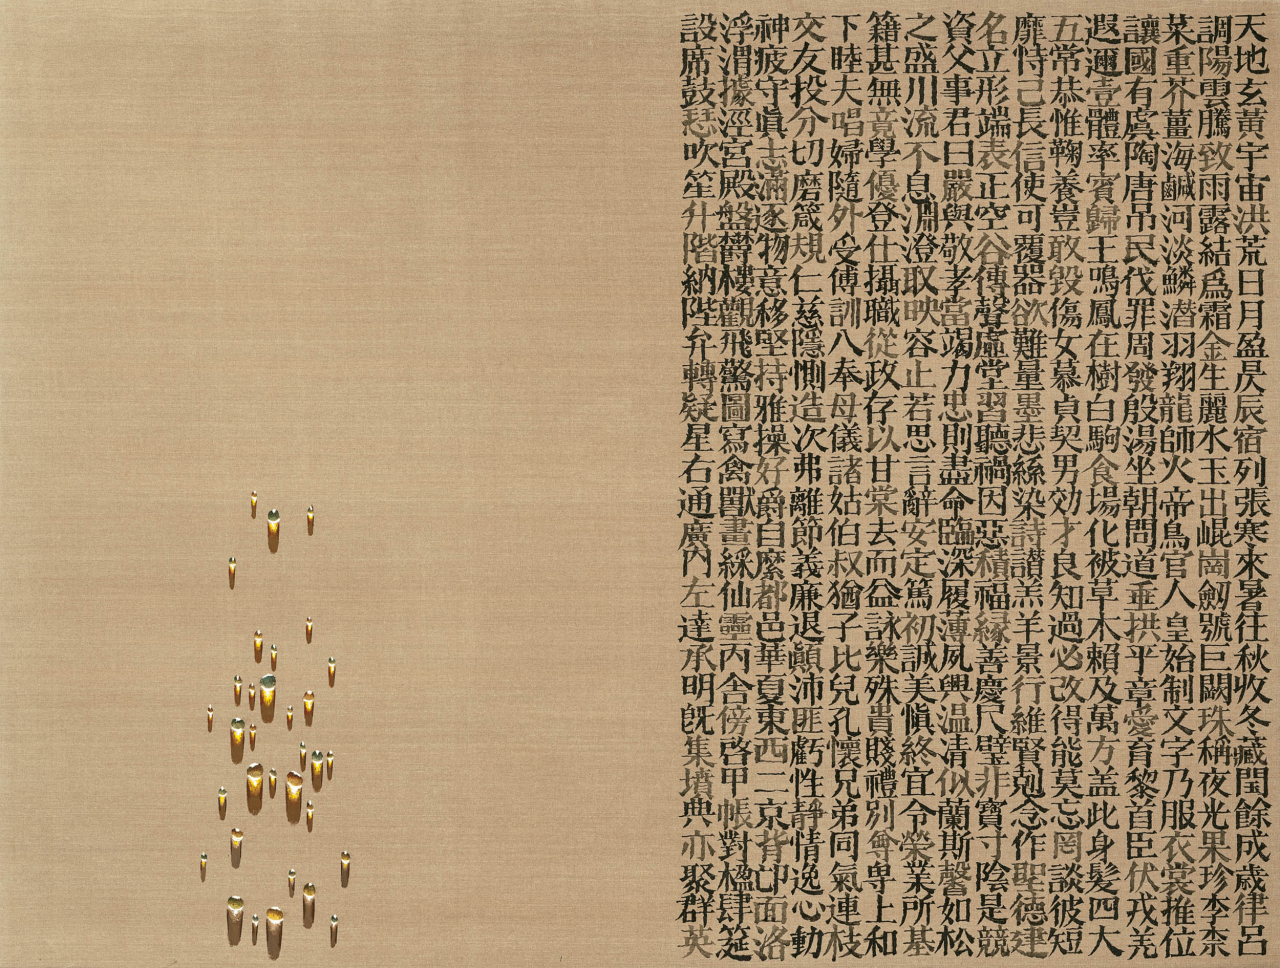 天地玄黃宇宙洪荒日月盈昃辰宿列張寒來暑往秋收冬藏閏餘成歲律呂
調陽雲騰致雨露結爲霜金生麗水玉出崐崗劒號巨闕珠稱夜光果珍李柰
菜重芥薑海鹹河淡鱗潜羽翔龍師火帝鳥官人皇始制文字乃服衣裳推位
讓國有虞陶唐吊民伐罪周發殷湯坐朝問道垂拱平章愛育黎首臣伏戎羌
遐邇壹體率賓歸王鳴鳳在樹白駒食場化被草木賴及萬方盖此身髮四大
五常恭惟鞠養豈敢毀傷女慕貞絜男効才良知過必改得能莫忘罔談彼短
靡恃己長信使可覆器欲難量墨悲絲染詩讃羔羊景行維賢剋念作聖德建
名立形端表正空谷傳聲虛堂習聽禍因惡積福緣善慶尺璧非寶寸陰是競
資父事君曰嚴與敬孝當竭力忠則盡命臨深履薄夙興温凊似蘭斯馨如松
之盛川流不息淵澄取映容止若思言辭安定篤初誠美愼終宜令榮業所基
籍甚無竟學優登仕攝職從政存以甘棠去而益詠樂殊貴賤禮別尊卑上和
下睦夫唱婦隨外受傅訓入奉母儀諸姑伯叔猶子比兒孔懷兄弟同氣連枝
交友投分切磨箴規仁慈隱惻造次弗離節義廉退顚沛匪虧性靜情逸心動
神疲守眞志滿逐物意移堅持雅操好爵自縻都邑華夏東西二京背邙面洛
浮渭據涇宮殿盤欝樓觀飛驚圖寫禽獸畫綵仙靈丙舍傍啓甲帳對楹肆筵
設席鼓瑟吹笙升階納陛弁轉疑星右通廣內左達承明旣集墳典亦聚群英